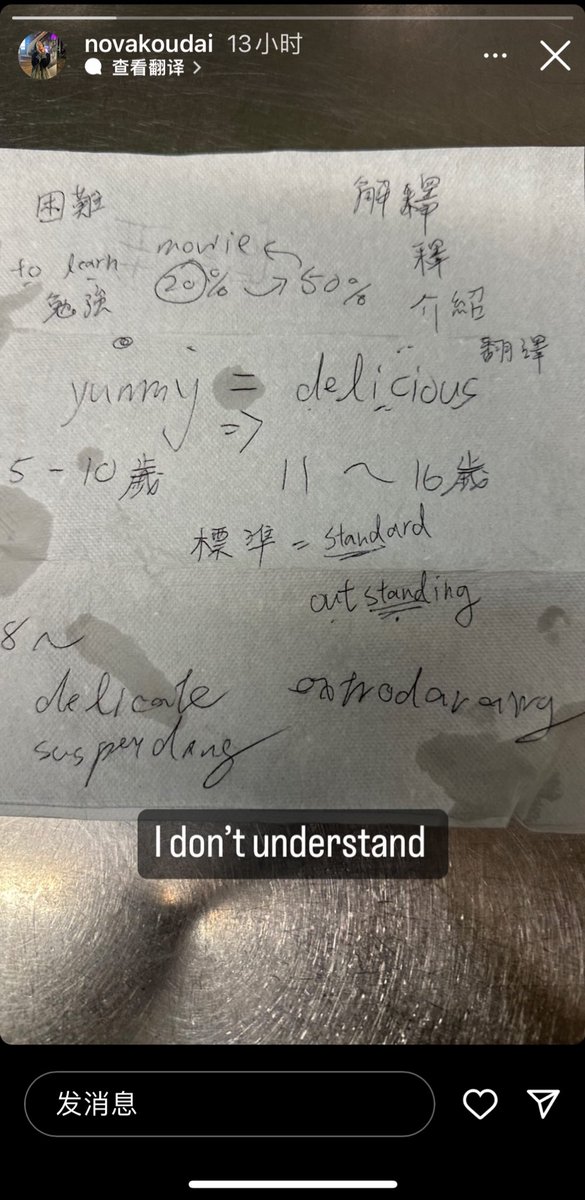 novakoudai 13小时
查看翻译
困難
解釋
釋
movie
to learn
20% 50%
勉強
介紹
翻譯
yummy = delicious
⇒
5-10歲 11～16歲
標準 = standard
outstanding
8～
delicate extrodarang
suspending
I don't understand
发消息